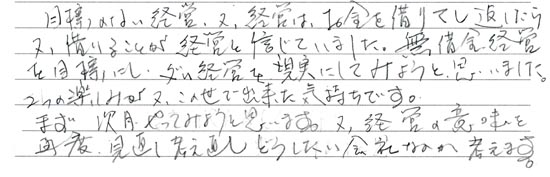 目標のない経営、又、経営は、お金を借りてし返したら
又、借りることが経営と信じていました。無借金経営
を目標にし、ダム経営を現実にしてみようと思いました。
2つの楽しみが又、この世で出来た気持ちです。
まず 次月、やってみようと思います。又、経営の意味を
再度、見直し考え直し どうしたい会社なのか考えます。